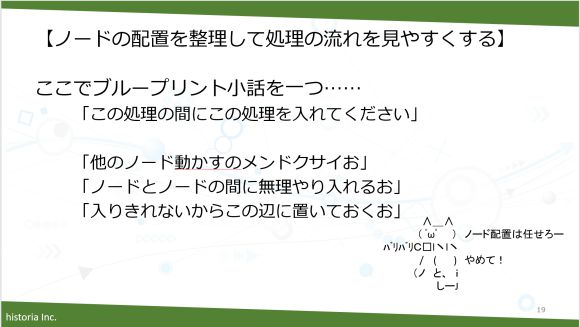 【ノードの配置を整理して処理の流れを見やすくする】
ここでブループリント小話を一つ……
「この処理の間にこの処理を入れてください」
「他のノード動かすのメンドクサイお」
「ノードとノードの間に無理やり入れるお」
「入りきれないからこの辺に置いておくお」
∧＿∧
（ ﾟωﾟ ） ノード配置は任せろー
ﾊﾞﾘﾊﾞﾘC□l丶l丶
/ （ ） やめて！
（ノ と、 i
しーJ
19
historia Inc.